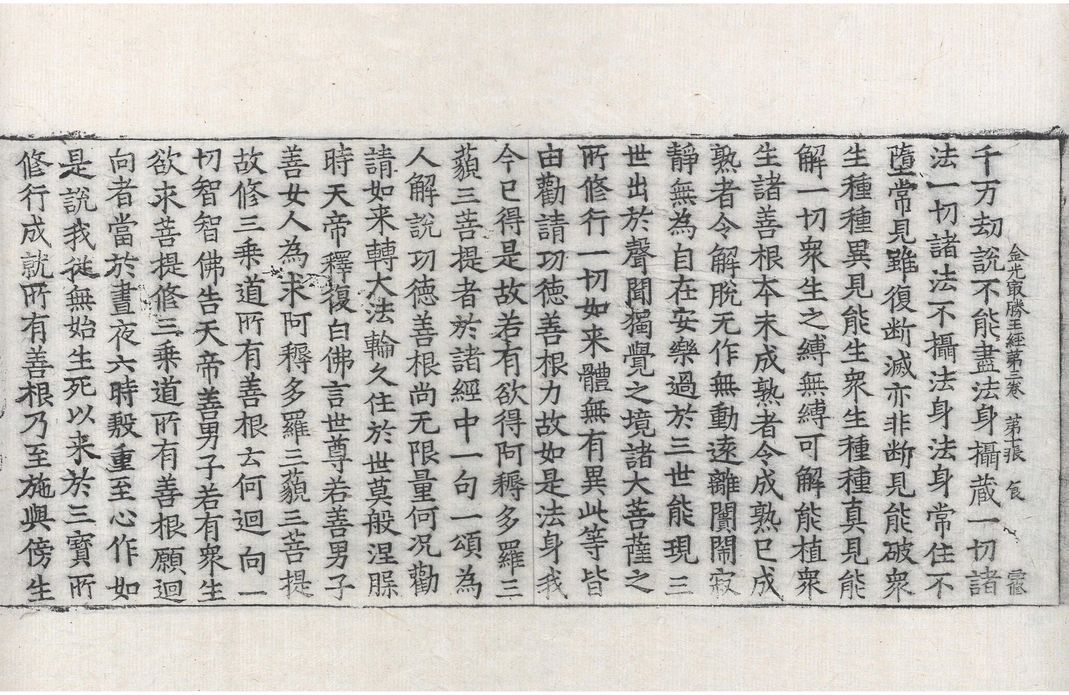 金光㝡勝王經第三卷　第十張　食　霊
千万劫說不能盡法身攝蔵一切諸
法一切諸法不攝法身法身常住不
墮常見雖復断滅亦非断見能破衆
生種種異見能生衆生種種真見能
解一切衆生之縛無縛可解能植衆
生諸善根本未成熟者令成熟已成
熟者令解脫无作無動遠離闤閙寂
靜無為自在安樂過於三世能現三
世出於聲聞獨覺之境諸大菩薩之
所修行一切如来體無有異此等皆
由勸請功徳善根力故如是法身我
今已得是故若有欲得阿耨多羅三
藐三菩提者於諸經中一句一頌為
人解說功徳善根尚无限量何况勸
請如来轉大法輪久住於世莫般涅槃
時天帝釋復白佛言世尊若善男子
善女人為求阿耨多羅三藐三菩提
故修三乗道所有善根云何迴向一
切智智佛告天帝善男子若有衆生
欲求菩提修三乗道所有善根願迴
向者當於晝夜六時慇重至心作如
是說我從無始生死以来於三寶所
修行成就所有善根乃至施與傍生